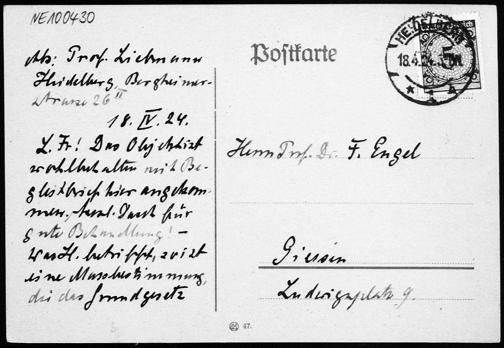 NE100430
Abs: Prof. Liebmann
Heidelberg, Bergheimer-
strasse 26 II
18. IV. 24.
L. Fr! Das Objekt ist
wohlbehalten mit Be-
gleitbrief hier angekom-
men, herzl. Dank für
gute Behandlung! –
Was H. betrifft, so ist
eine Massbestimmung,
die das Grundgesetz
Postkarte
HEIDELBERG
18.4.24.
* 1 A
5
Herrn Prof. Dr. F. Engel
Giessen
Ludwigsplatz 9.
47.